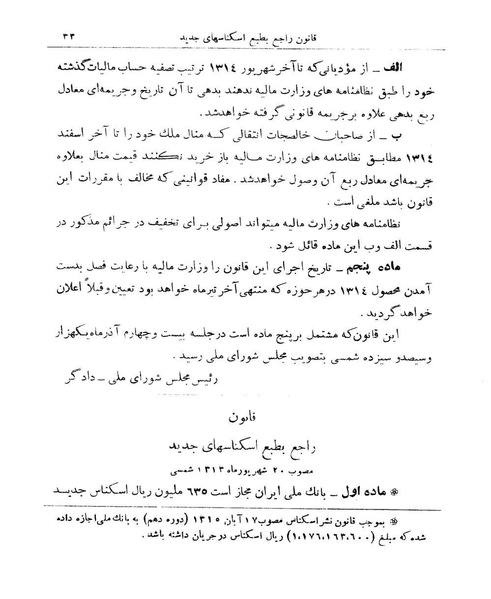 قانون راجع بطبع اسکناسهای جدید ۳۳
الف ــ از مؤدیانی که تا آخر شهریور ۱۳۱۴ ترتیب تصفیه حساب مالیات گذشته
خود را طبق نظامنامه های وزارت مالیه ندهند بدهی تا آن تاریخ وجریمه‌ای معادل
ربع بدهی علاوه برجریمه قانونی گرفته خواهدشد.
ب ــ از صاحبان خالصجات انتقالی که منال ملك خود را تا آخر اسفند
۱۳۱۴ مطابق نظامنامه های وزارت مالیه باز خرید نکنند قیمت منال بعلاوه
جریمه‌ای معادل ربع آن وصول خواهدشد . مفاد قوانینی که مخالف با مقررات این
قانون باشد ملغی است .
نظامنامه های وزارت مالیه میتواند اصولی برای تخفیف در جرائم مذکور در
قسمت الف وب این ماده قائل شود .
ماده پنجم ــ تاریخ اجرای این قانون را وزارت مالیه با رعایت فصل بدست
آمدن محصول ۱۳۱۴ درهر حوزه که منتهی آخر تیرماه خواهد بود تعیین وقبلاً اعلان
خواهد گردید .
این قانون که مشتمل بر پنج ماده است درجلسه بیست وچهارم آذرماه یکهزار
وسیصدو سیزده شمسی بتصویب مجلس شورای ملی رسید .
رئیس مجلس شورای ملی ــ دادگر
قانون
راجع بطبع اسکناسهای جدید
مصوب ۲۰ شهریورماه ۱۳۱۳ شمسی
* ماده اول ــ بانك ملی ایران مجاز است ۶۳۵ ملیون ریال اسکناس جدید
* بموجب قانون نشر اسکناس مصوب ۱۷ آبان ۱۳۱۵ (دوره دهم) به بانك ملی اجازه داده
شده که مبلغ (۱،۱۷۶،۱۶۳،۶۰۰) ریال اسکناس در جریان داشته باشد .